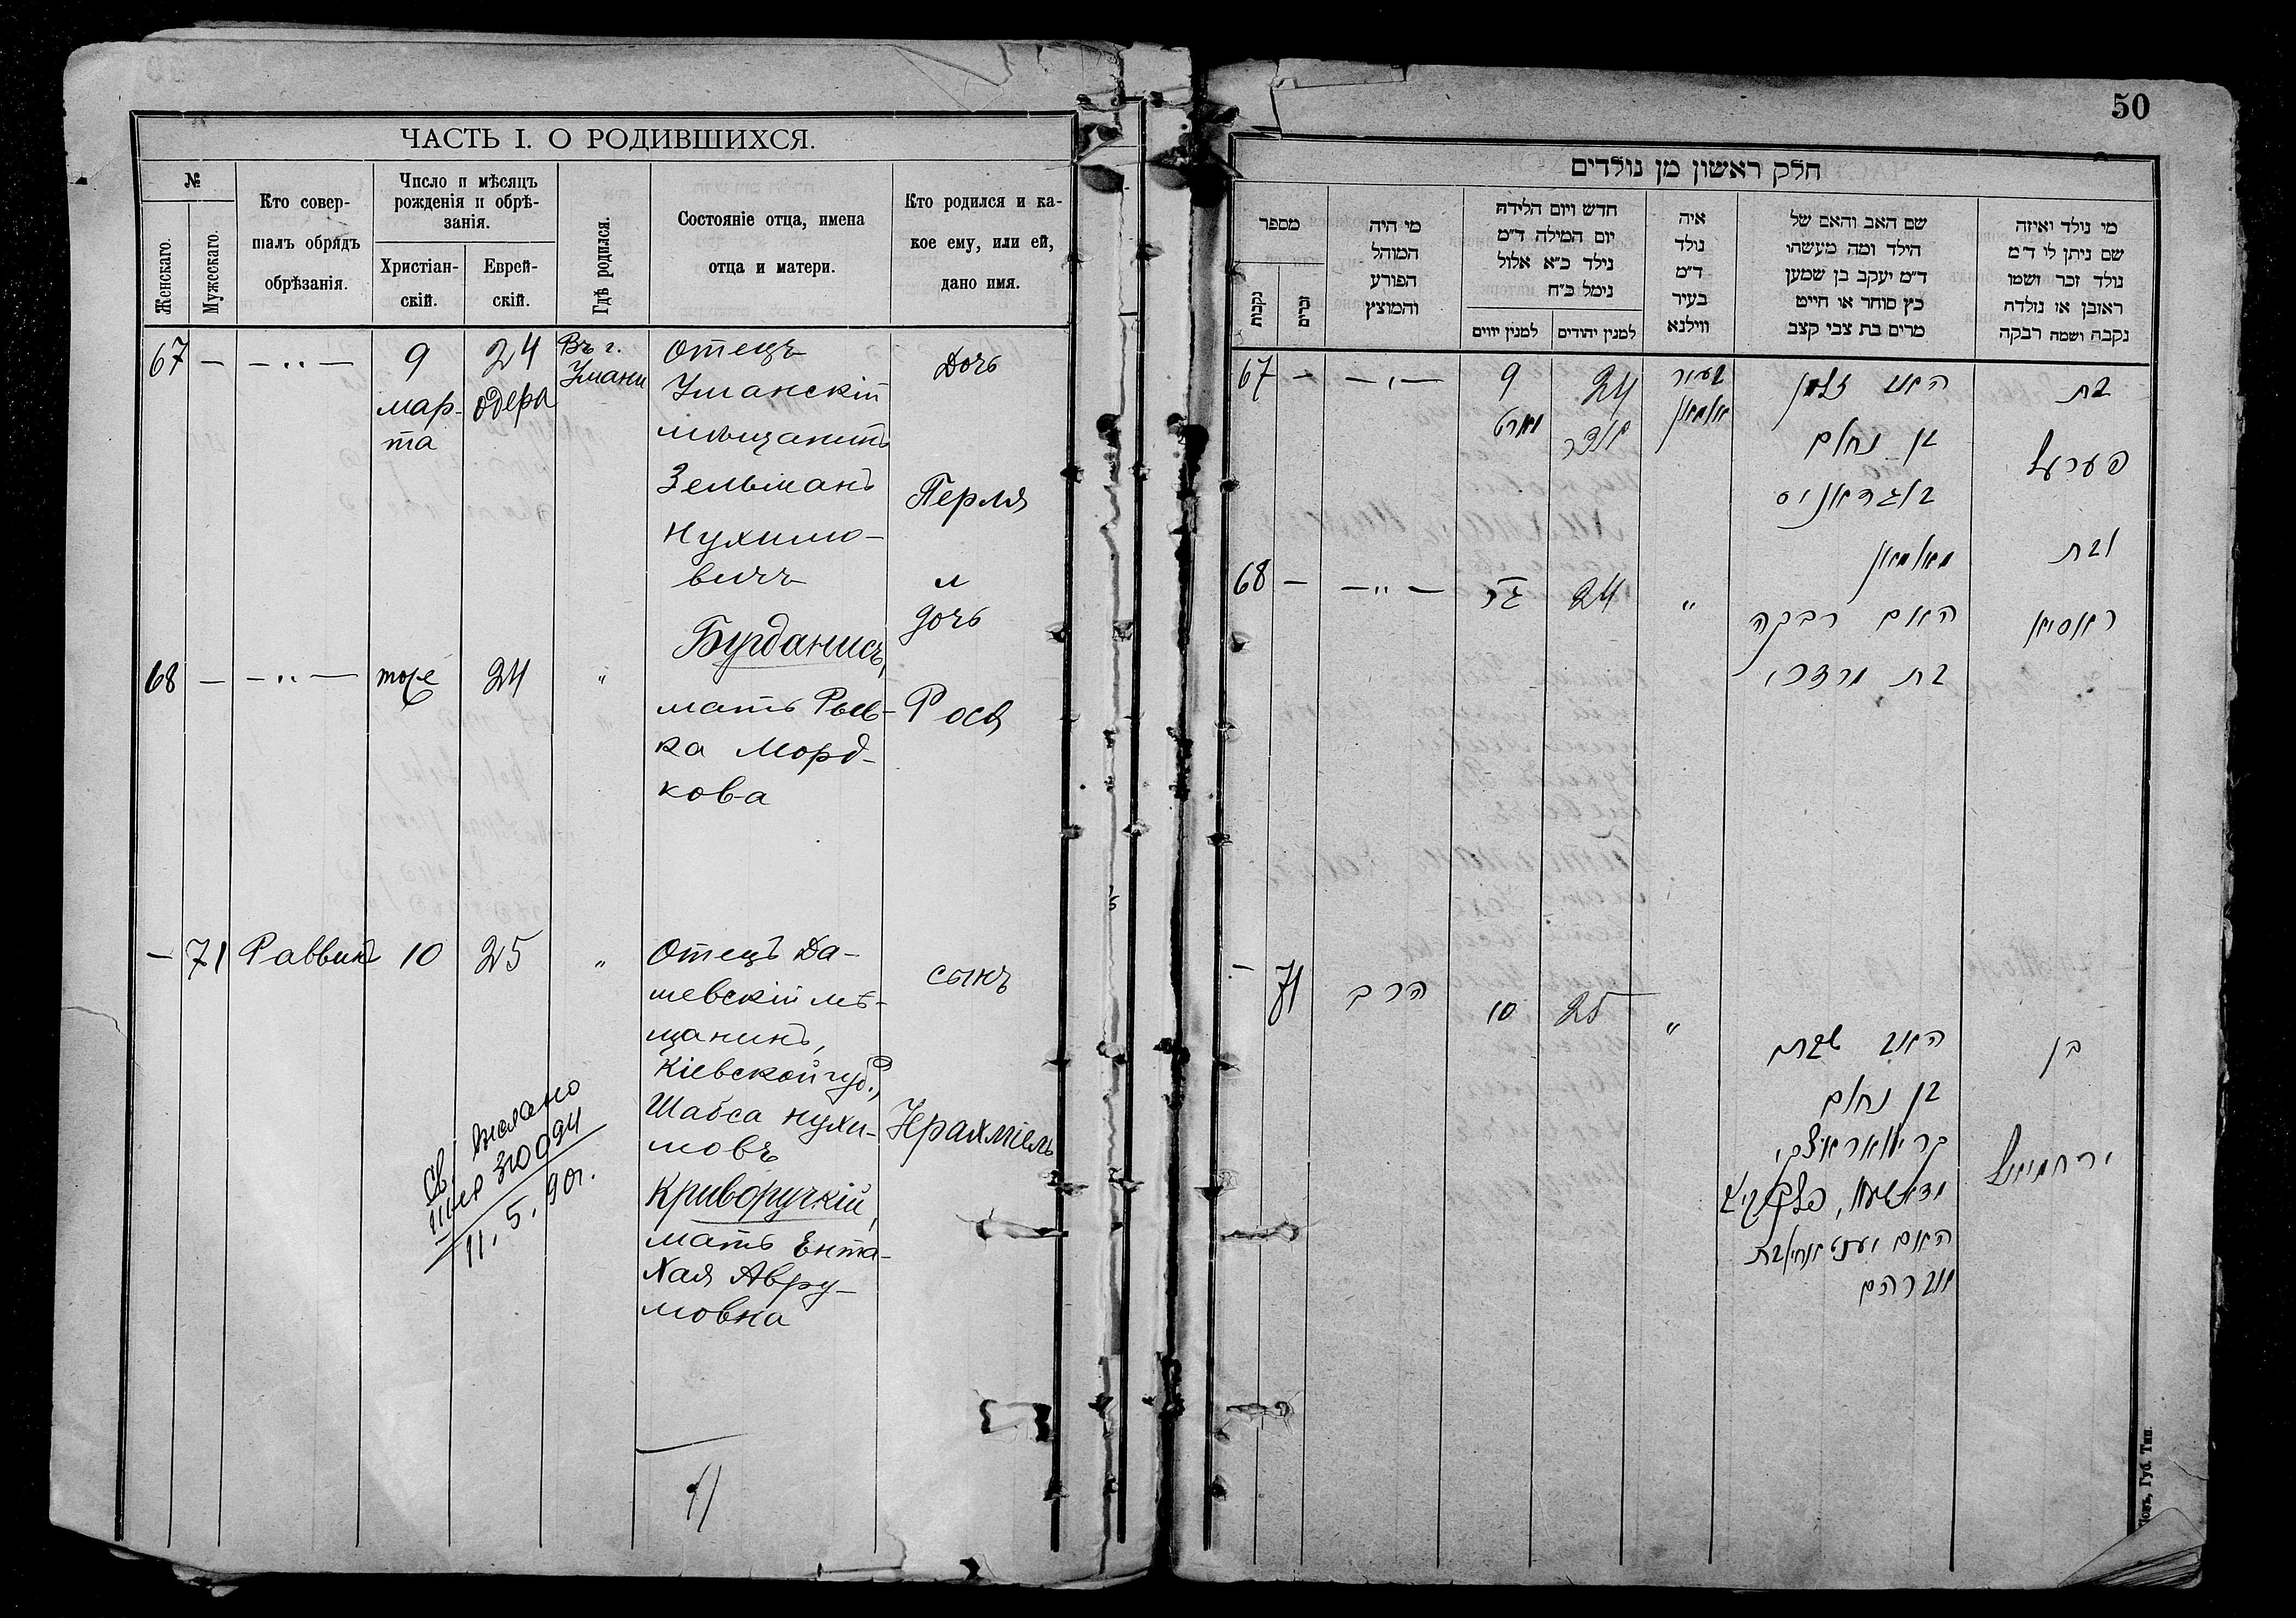 50
ЧАСТЬ I. О РОДИВШИХСЯ.
№
Женскаго.
Мужескаго.
Кто совер-
шалъ обрядъ
обрѣзанія.
Число и мѣсяцъ
рожденія и обрѣ-
занія.
Христіан-
скій.
Еврей-
скій.
Гдѣ родился.
Состояніе отца, имена
отца и матери.
Кто родился и ка-
кое ему, или ей,
дано имя.
67 — — „ — 9 24 Въ г.
мар- Адера Умани
та
Отецъ
Уманскій
мѣщанинъ
Зельманъ
Нухимо-
вичъ
Бугданисъ,
мать Рыв-
ка Морд-
кова
Дочь
Перля
и
дочь
Рося
68 — — „ — тоже 24 „
— 71 Раввинъ 10 25 „
Отецъ Да-
шевскій мѣ-
щанинъ,
Кіевской губ.,
Шабса Нухи-
мовъ
Криворучкій,
мать Ента-
Хая Авру-
мовна
сынъ
Ирахміель
11. 5. 90г.
חלק ראשון מן נולדים
מספר
נקבות
זכרים
מי היה
המוהל
הפורע
והמוצץ
חדש ויום הלידה
יום המילה ד״מ
נילד כ״א אלול
נימל כ״ח
למנין יווים
למנין יהודים
איה
נולד
ד״מ
בעיר
ווילנא
שם האב והאם של
הילד ומה מעשהו
ד״מ יעקב בן שמען
כץ סוחר או חייט
מרים בת צבי קצב
מי נולד ואיזה
שם ניתן לו ד״מ
נולד זכר ושמו
ראובן או נולדה
נקבה ושמה רבקה
67 — — „ — 9 24 בעיר
מארט אדר אומאן
האב זלמן
בן נחום
בוגדאניס
מאומאן
האם רבקה
בת מרדכי
בת
פערל
ובת
ראסיא
68 — — „ — 24 „
— 71 הרב 10 25 „
האב שבת
בן נחום
אברהם
בן
ירחמיאל
Губ. Тип.